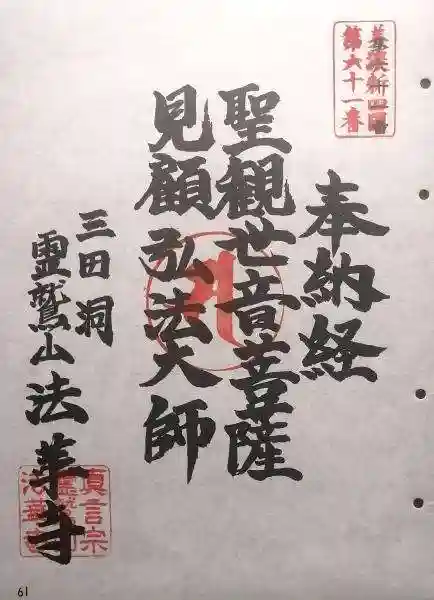 美濃新四国
第六十一番
奉納経
聖観世音菩薩
見顧弘法大師
三田洞
霊鷲山法華寺
真言宗
61